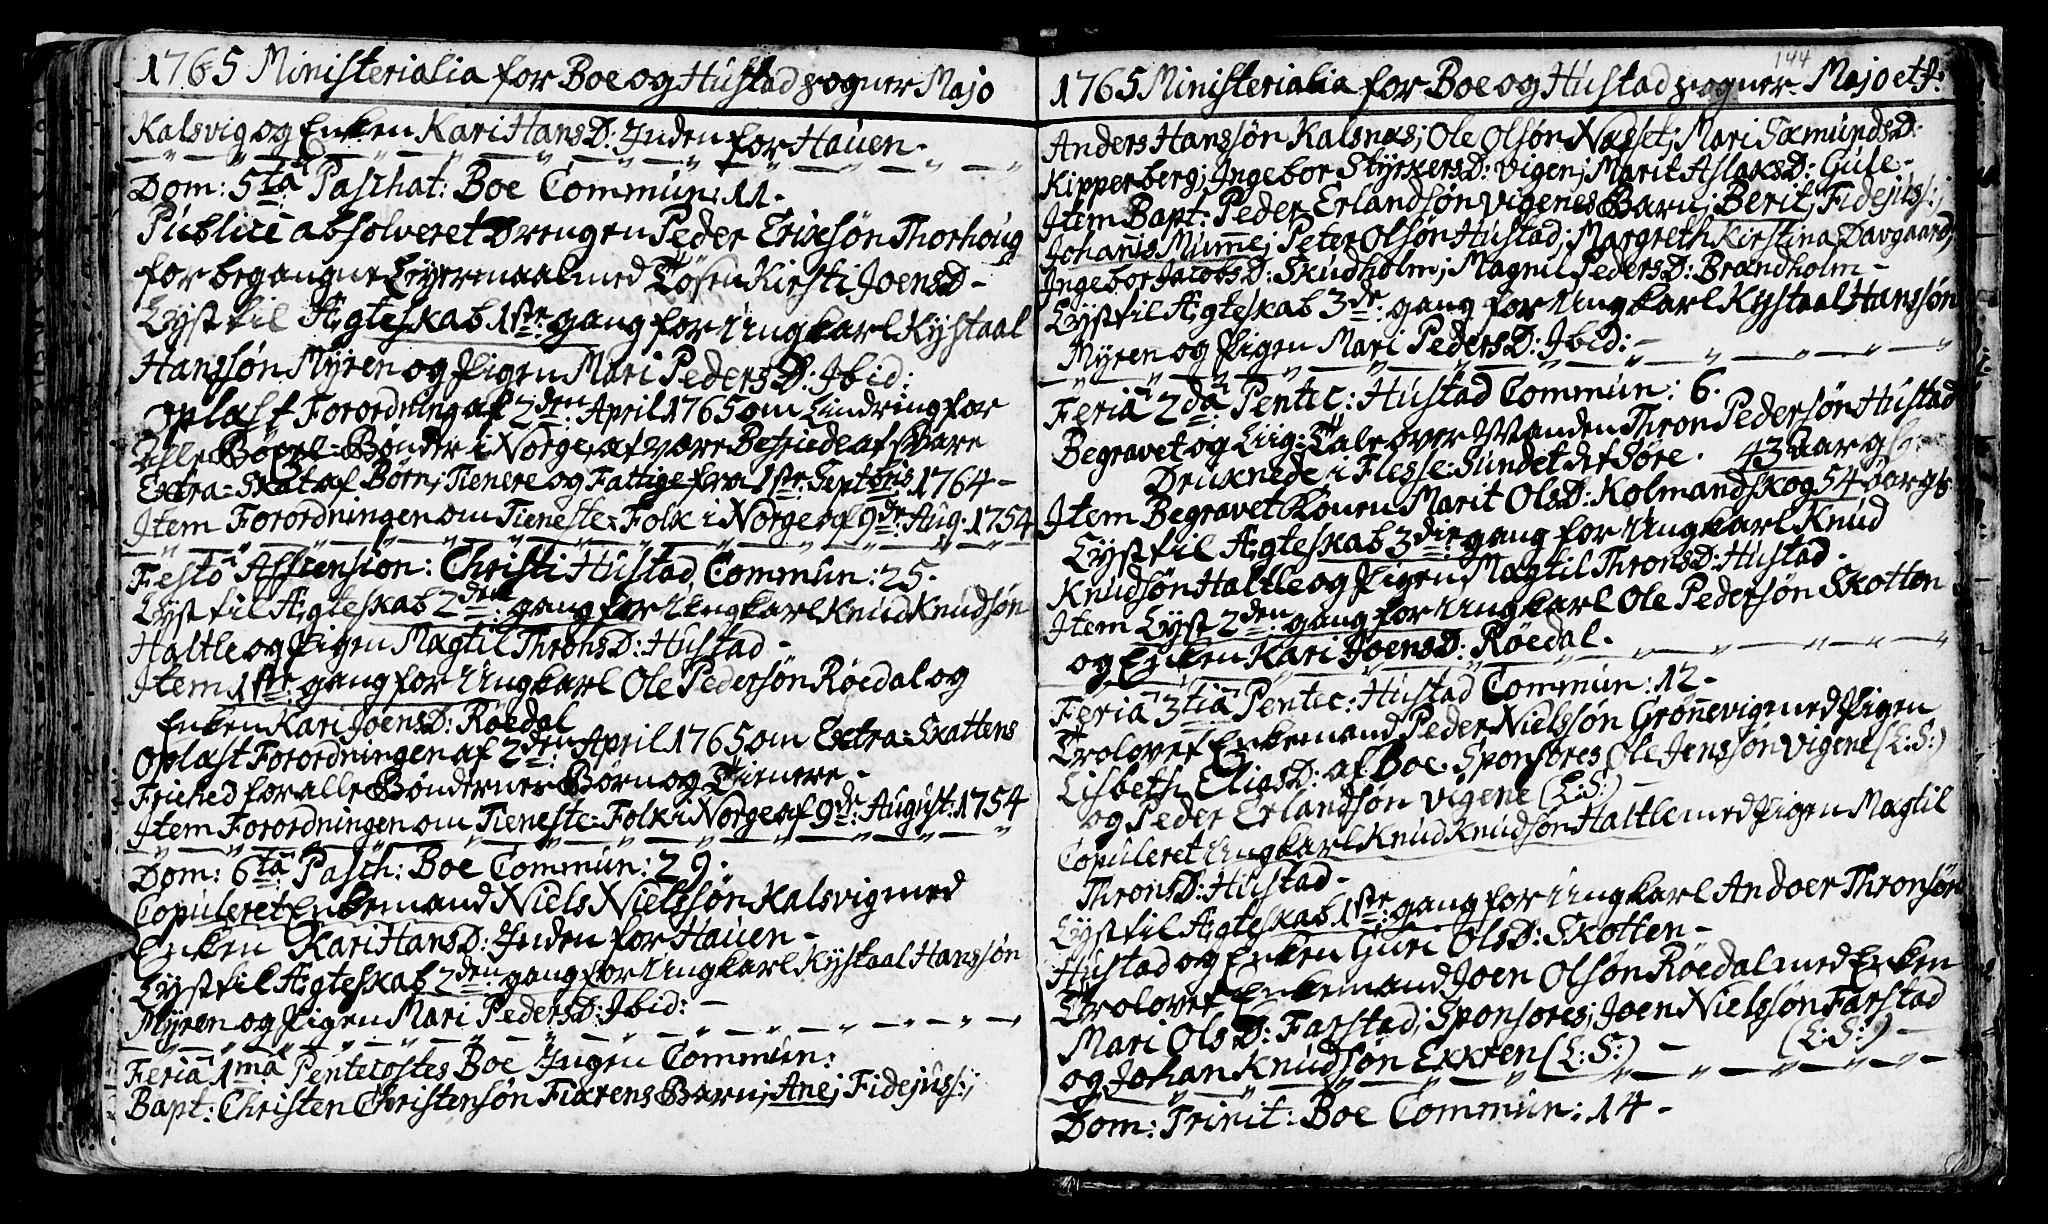 1765 Ministerialia for Boe og Hustad sogner Majo
Kalsvig og Enken Kari HansD: Inden for Hauen -
Dom: 5ta Paschat: Boe Commun: 11.
Publicè absolveret Drengen Peder Erixsøn Thorhoug
for begangne Leyermaal med Tøsen Kirsti JoensD -
Lyst til Ægteskab 1ste gang for Ungkarl Kystaal
Hanssøn Myren og Pigen Mari PedersD: Ibid:
Oplæst Forordning af 2den April 1765 om Lindring for
Bønder i Norge, af vore Befriede af svare
Extra-Skat af Børn, Tienere og Fattige fra 1ste Septbris 1764 -
Item Forordningen om Tieneste-Folk i Norge af 9de Aug. 1754
Festo Ascension: Christi Hustad Commun: 25.
Lyst til Ægteskab 2den gang for Ungkarl Knud Knudsøn
Haltle og Pigen Magtil ThronsD: Hustad -
Item 1ste gang for Ungkarl Ole Pedersøn Røedal og
Enken Kari JoensD: Røedal
Oplæst Forordningen af 2den April 1765 om Extra-Skattens
Friehed for alle Bøndernes Børn og Tienere -
Item Forordningen om Tieneste-Folk i Norge af 9de August: 1754
Dom: 6ta Pasch: Boe Commun: 29.
Copuleret Enkemand Niels Nielssøn Kalsvig med
Enken Kari HansD: Inden for Hauen -
Lyst til Ægteskab 2den gang for Ungkarl Kystaal Hanssøn
Myren og Pigen Mari PedersD: Ibid: -
Feria 1ma Pentecostes Boe Ingen Commun:
Bapt: Christen Christensøn Fiærens Barn; Ane; Fidejuss:;
144
1765 Ministerialia for Boe og Hustad sogner - Majo et J:
Anders Hanssøn Kalsnæs; Ole Olsøn Næsset; Mari SæmundsD:
Kipperberg; Ingebor StyrkersD: Vigen; Marit AslaksD: Gule -
Item Bapt: Peder Erlandsøn Vigenes Barn; Berit; Fidejuss:;
Johanis Mimme; Peter Olsøn Hustad; Margreth Kirstina Davgaard;
Ingebor JacobsD: Skudholm; Magnil PedersD: Brandholm -
Lyst til Ægteskab 3de gang for Ungkarl Kystaal Hanssøn
Myren og Pigen Mari PedersD: Ibid: -
Feria 2da Pentec: Hustad Commun: 6.
Begravet og Liig-Tale over Manden Thron Pedersøn Hustad
Druknede i Flesse-Sundet det Søre. 43 aar gl:
Item Begravet Konen Marit OlsD: Kolmandskog 54 aar gl:
Lyst til Ægteskab 3die gang for Ungkarl Knud
Knudsøn Haltle og Pigen Magtil ThronsD: Hustad -
Item Lyst 2den gang for Ungkarl Ole Pedersøn Skotten
og Enken Kari JoensD: Røedal.
Feria 3tia Pentec: Hustad Commun: 12 -
Trolovet Enkemand Peder Nielssøn Grønnevig med Pigen
Lisbeth EliasD: af Boe. Sponsores Ole Jenssøn Vigene (L:S:)
og Peder Erlandsøn Vigene (L:S:) -
Copuleret Ungkarl Knud Knudsøn Haltle med Pigen Magtil
ThronsD: Hustad -
Lyst til Ægteskab 1ste gang for Ungkarl Andoer Thronsøn
Hustad og Enken Guri OlsD: Skotten -
Trolovet Enkemand Joen Olsøn Røedal med Enken
Mari OlsD: Farstad; Sponsores; Joen Nielssøn Farstad
og Johan Knudsøn Exkren (L:S:) - (L:S:) -
Dom: Trinit: Boe Commun: 14 -